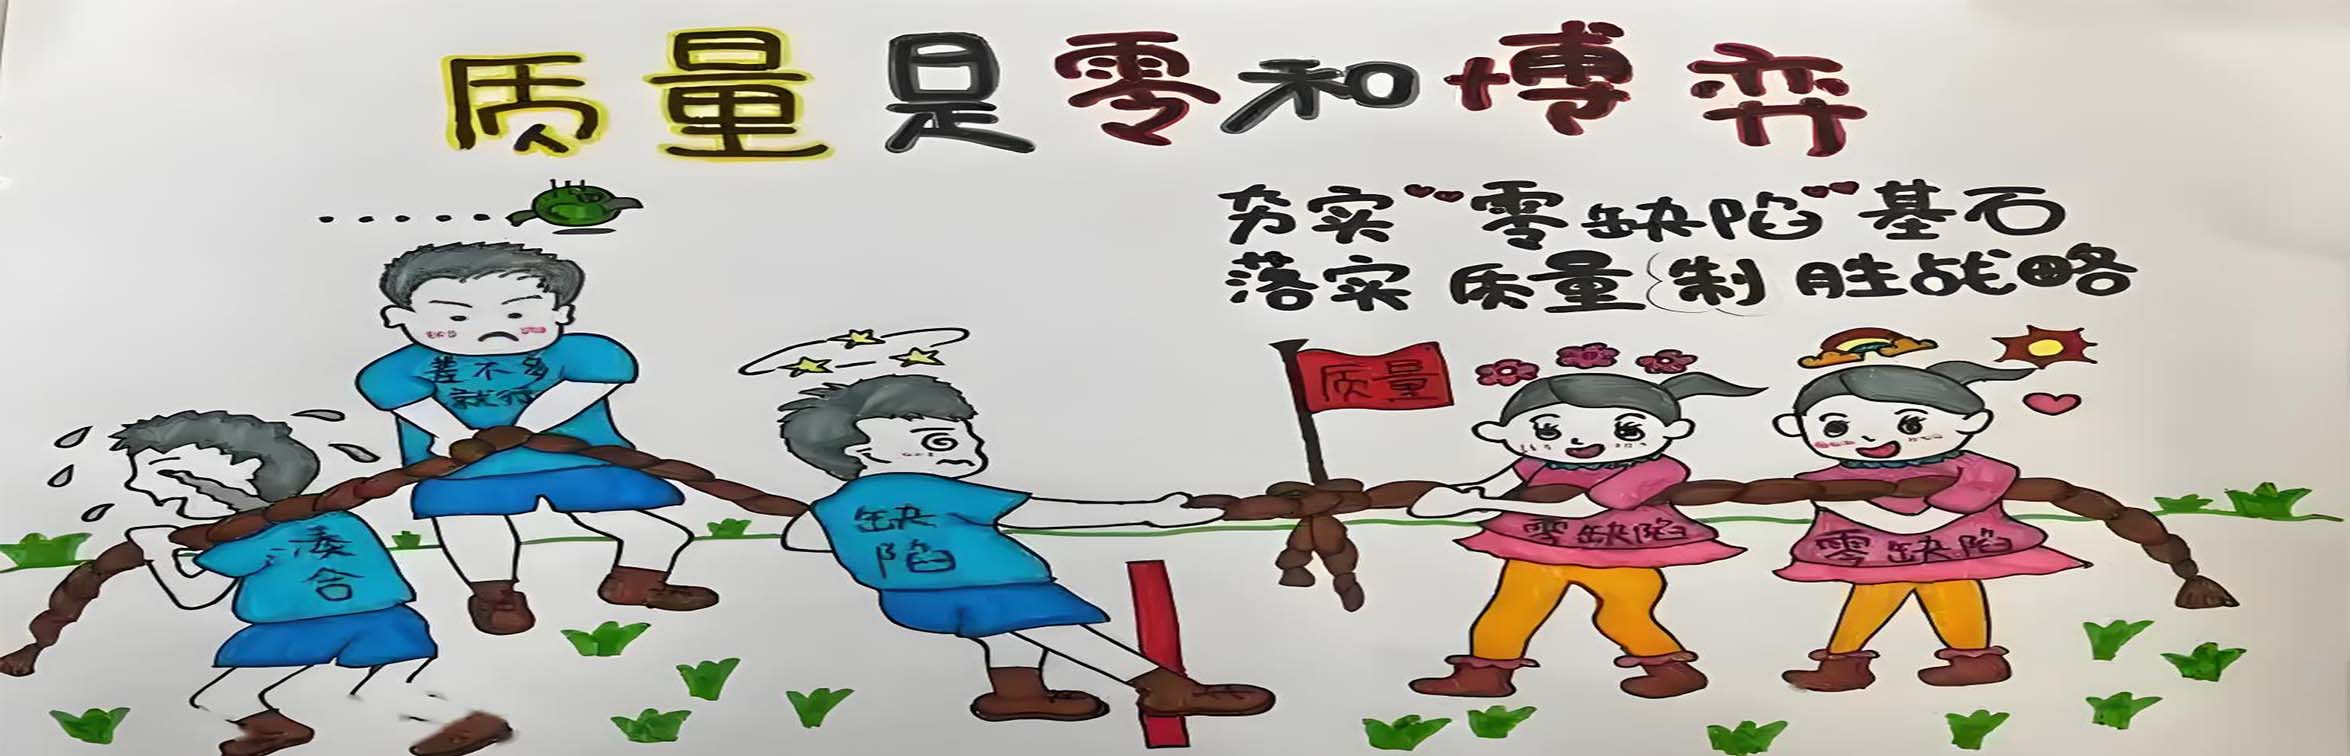 质量是零和博弈
夯实"零缺陷"基石
落实质量制胜战略
差不多
就行
质量
缺
陷
凑
合
零缺陷
零缺陷